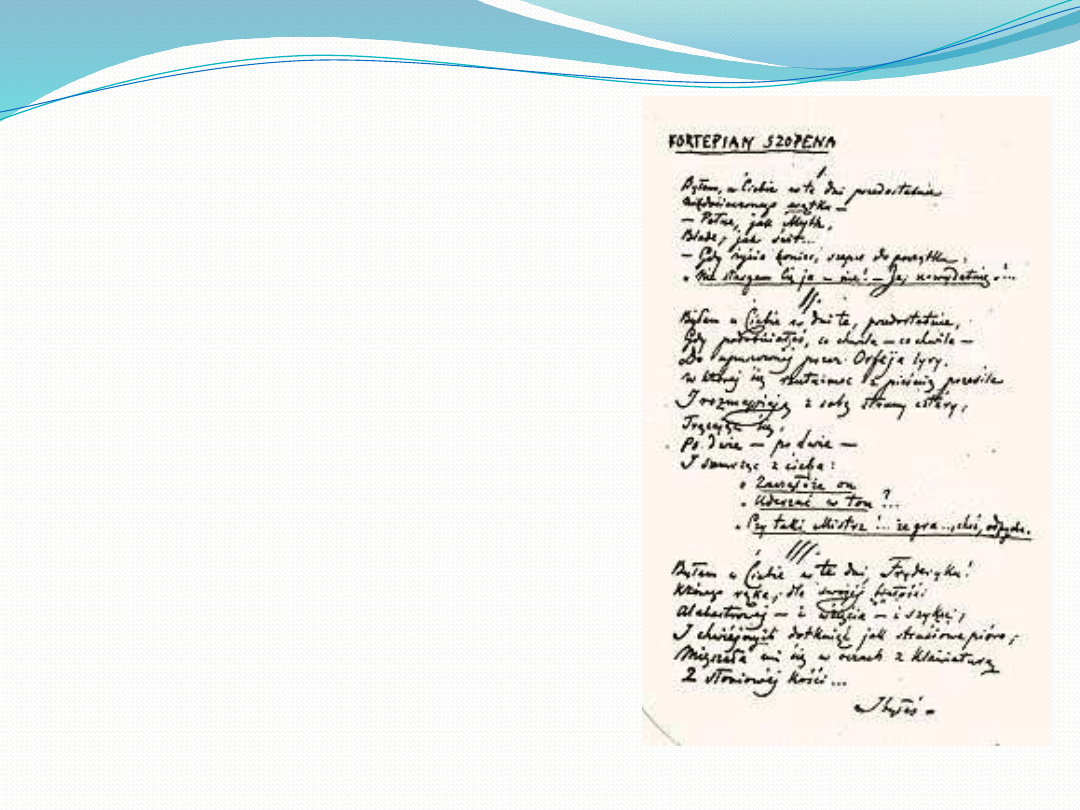 FORTEPIAN SZOPENA
I
Byłem u Ciebie w te dni przedostatnie
Niedocieczonego wątku —
— Pełne, jak Myth,
Blade, jak świt...
— Gdy życia koniec szepce do początku:
„Nie stargam Cię ja — nie! — Ja, uwydatnię!...
II.
Byłem u Ciebie w dni te, przedostatnie,
Gdy podobniałeś, co chwila — co chwila —
Do upuszczonej przez Orfeja lyry,
W której się rzutu-moc z pieśnią przesila
I rozmawiają z sobą struny cztéry,
Trącając się,
Po dwie — po dwie —
I szemrząc z cicha:
„Zacząłże on
„Uderzać w ton?...
„Czy taki Mistrz!... że gra... choć, odpycha.
III.
Byłem u Ciebie w te dni, Fryderyku!
Którego ręka, dla swojéj białości
Alabastrowéj — i wzięcia — i szyku,
I chwiejnych dotknięć jak strusiowe pióro,
Mięszała mi się w oczach z klawiaturą
Z słoniowéj kości...
I byłeś